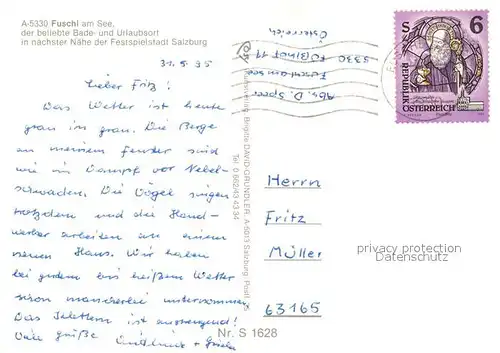 A-5330 Fuschl am See,
der beliebte Bade- und Urlaubsort
in nächster Nähe der Festspielstadt Salzburg
31.5.95
Lieber Fritz!
Das Wetter ist heute
grau in grau. Die Berge
an meinem Fenster sind
wie in Dampf vor Nebel-
schwaden. Die Vögel singen
trotzdem und die Hand-
werker arbeiten an einem
neuen Haus. Wir haben
bei gutem bis heißem Wetter
schon mancherlei unternommen
Das ist anstrengend!
Viele Grüße
Abs. D. Speer
Fuschl am See
5330
Österreich
Brigitte DAVID-GRÜNDLER, A-5013 Salzburg, Postf.
Tel. 0 662/43 43 34
S 6
REPUBLIK
ÖSTERREICH
Herrn
Fritz
Müller
63165
privacy protection
Datenschutz
Nr. S 1628